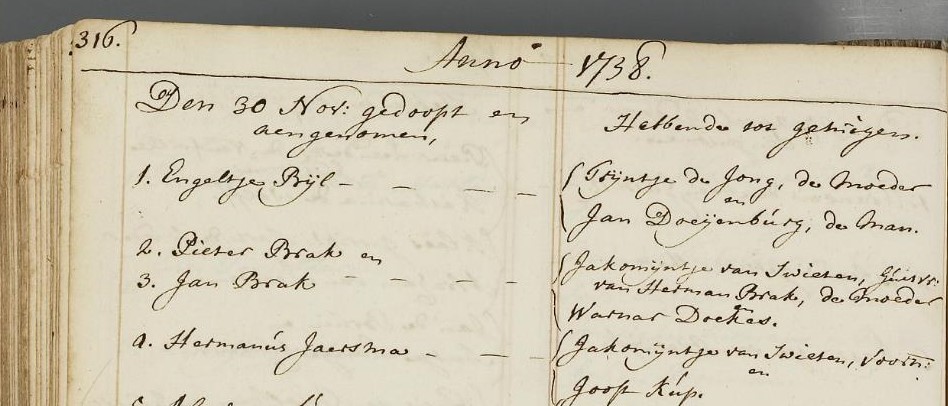 316.
Anno 1738.
Den 30 Nov: gedoopt en
aengenomen,
Hebbende tot getuigen.
1. Engeltje Bijl - - - -
Trijntje de Jong, de Moeder
en
Jan Doeijenburg, de Man.
2. Pieter Brak en
3. Jan Brak - - - -
Jakomijntje van Swieten, Huisvr:
van Herman Brak, de Moeder
en
Warnar Doekes.
4. Hermanus Jaersma - - -
Jakomijntje van Swieten, voorn:
en
Joost Kup.